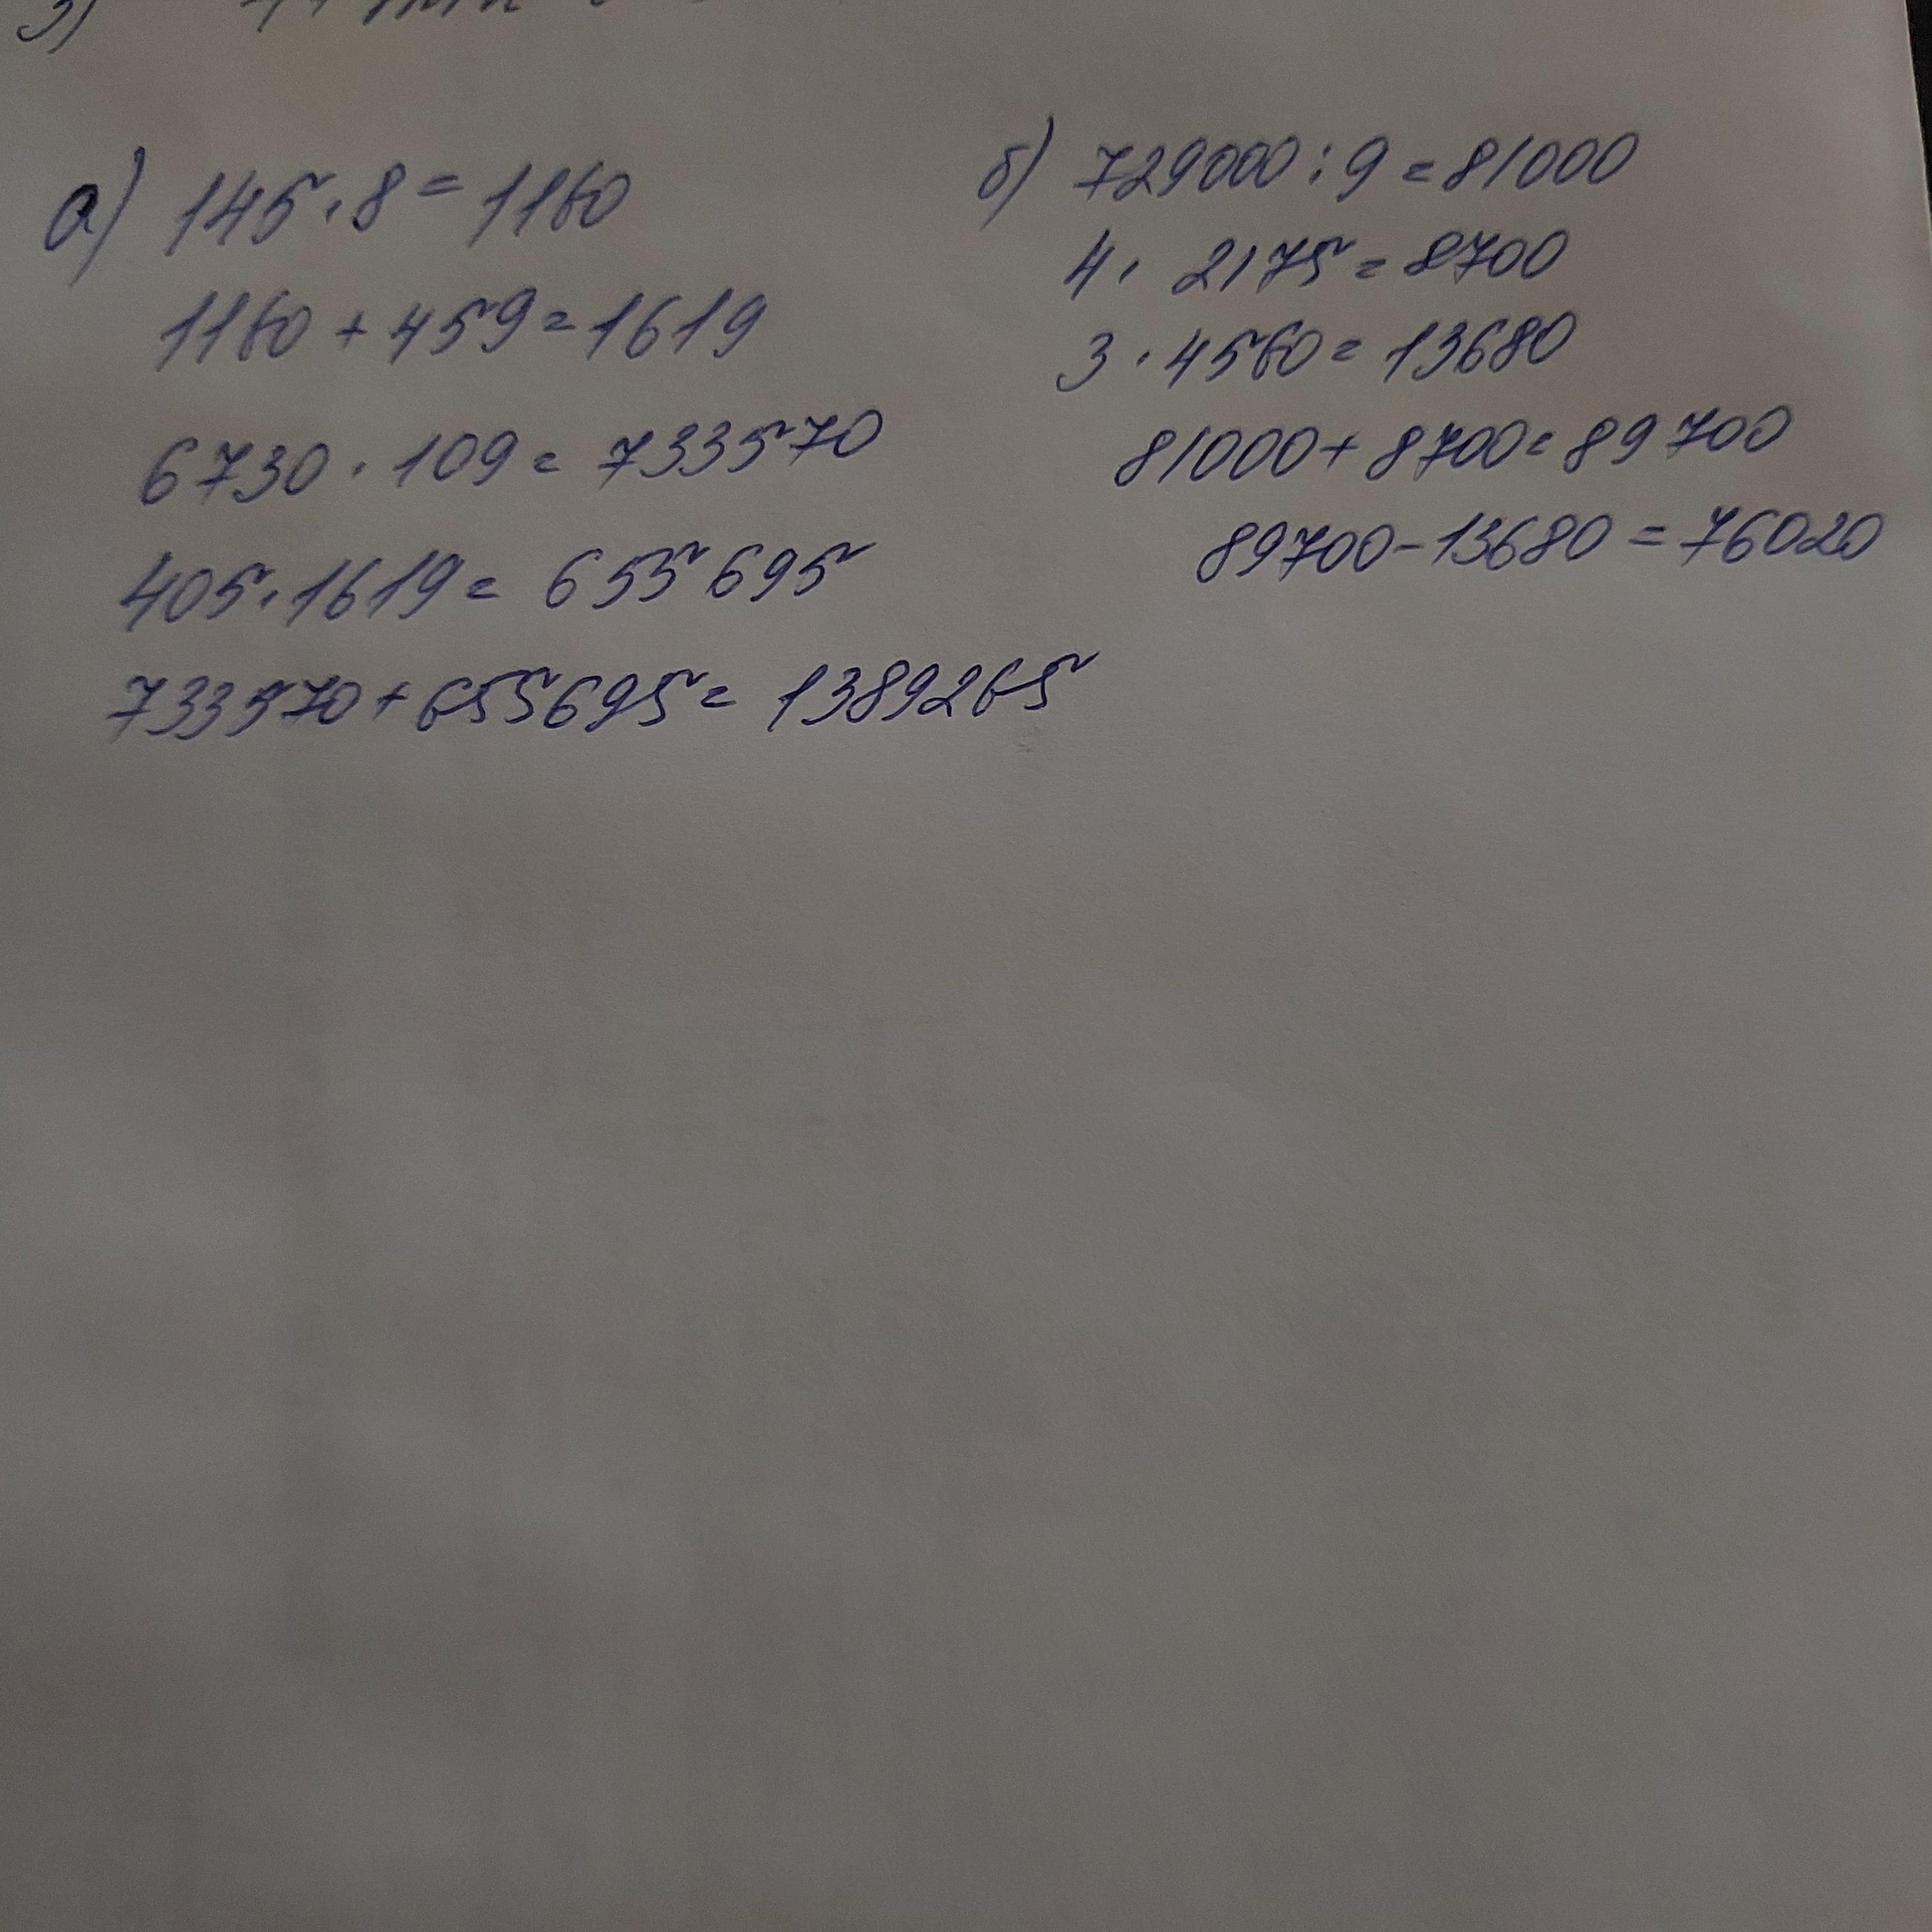 а) 145·8=1160
1160+459=1619
6730·109=733570
405·1619=655695
733570+655695=1389265
б) 729000:9=81000
4·2175=8700
3·4560=13680
81000+8700=89700
89700-13680=76020